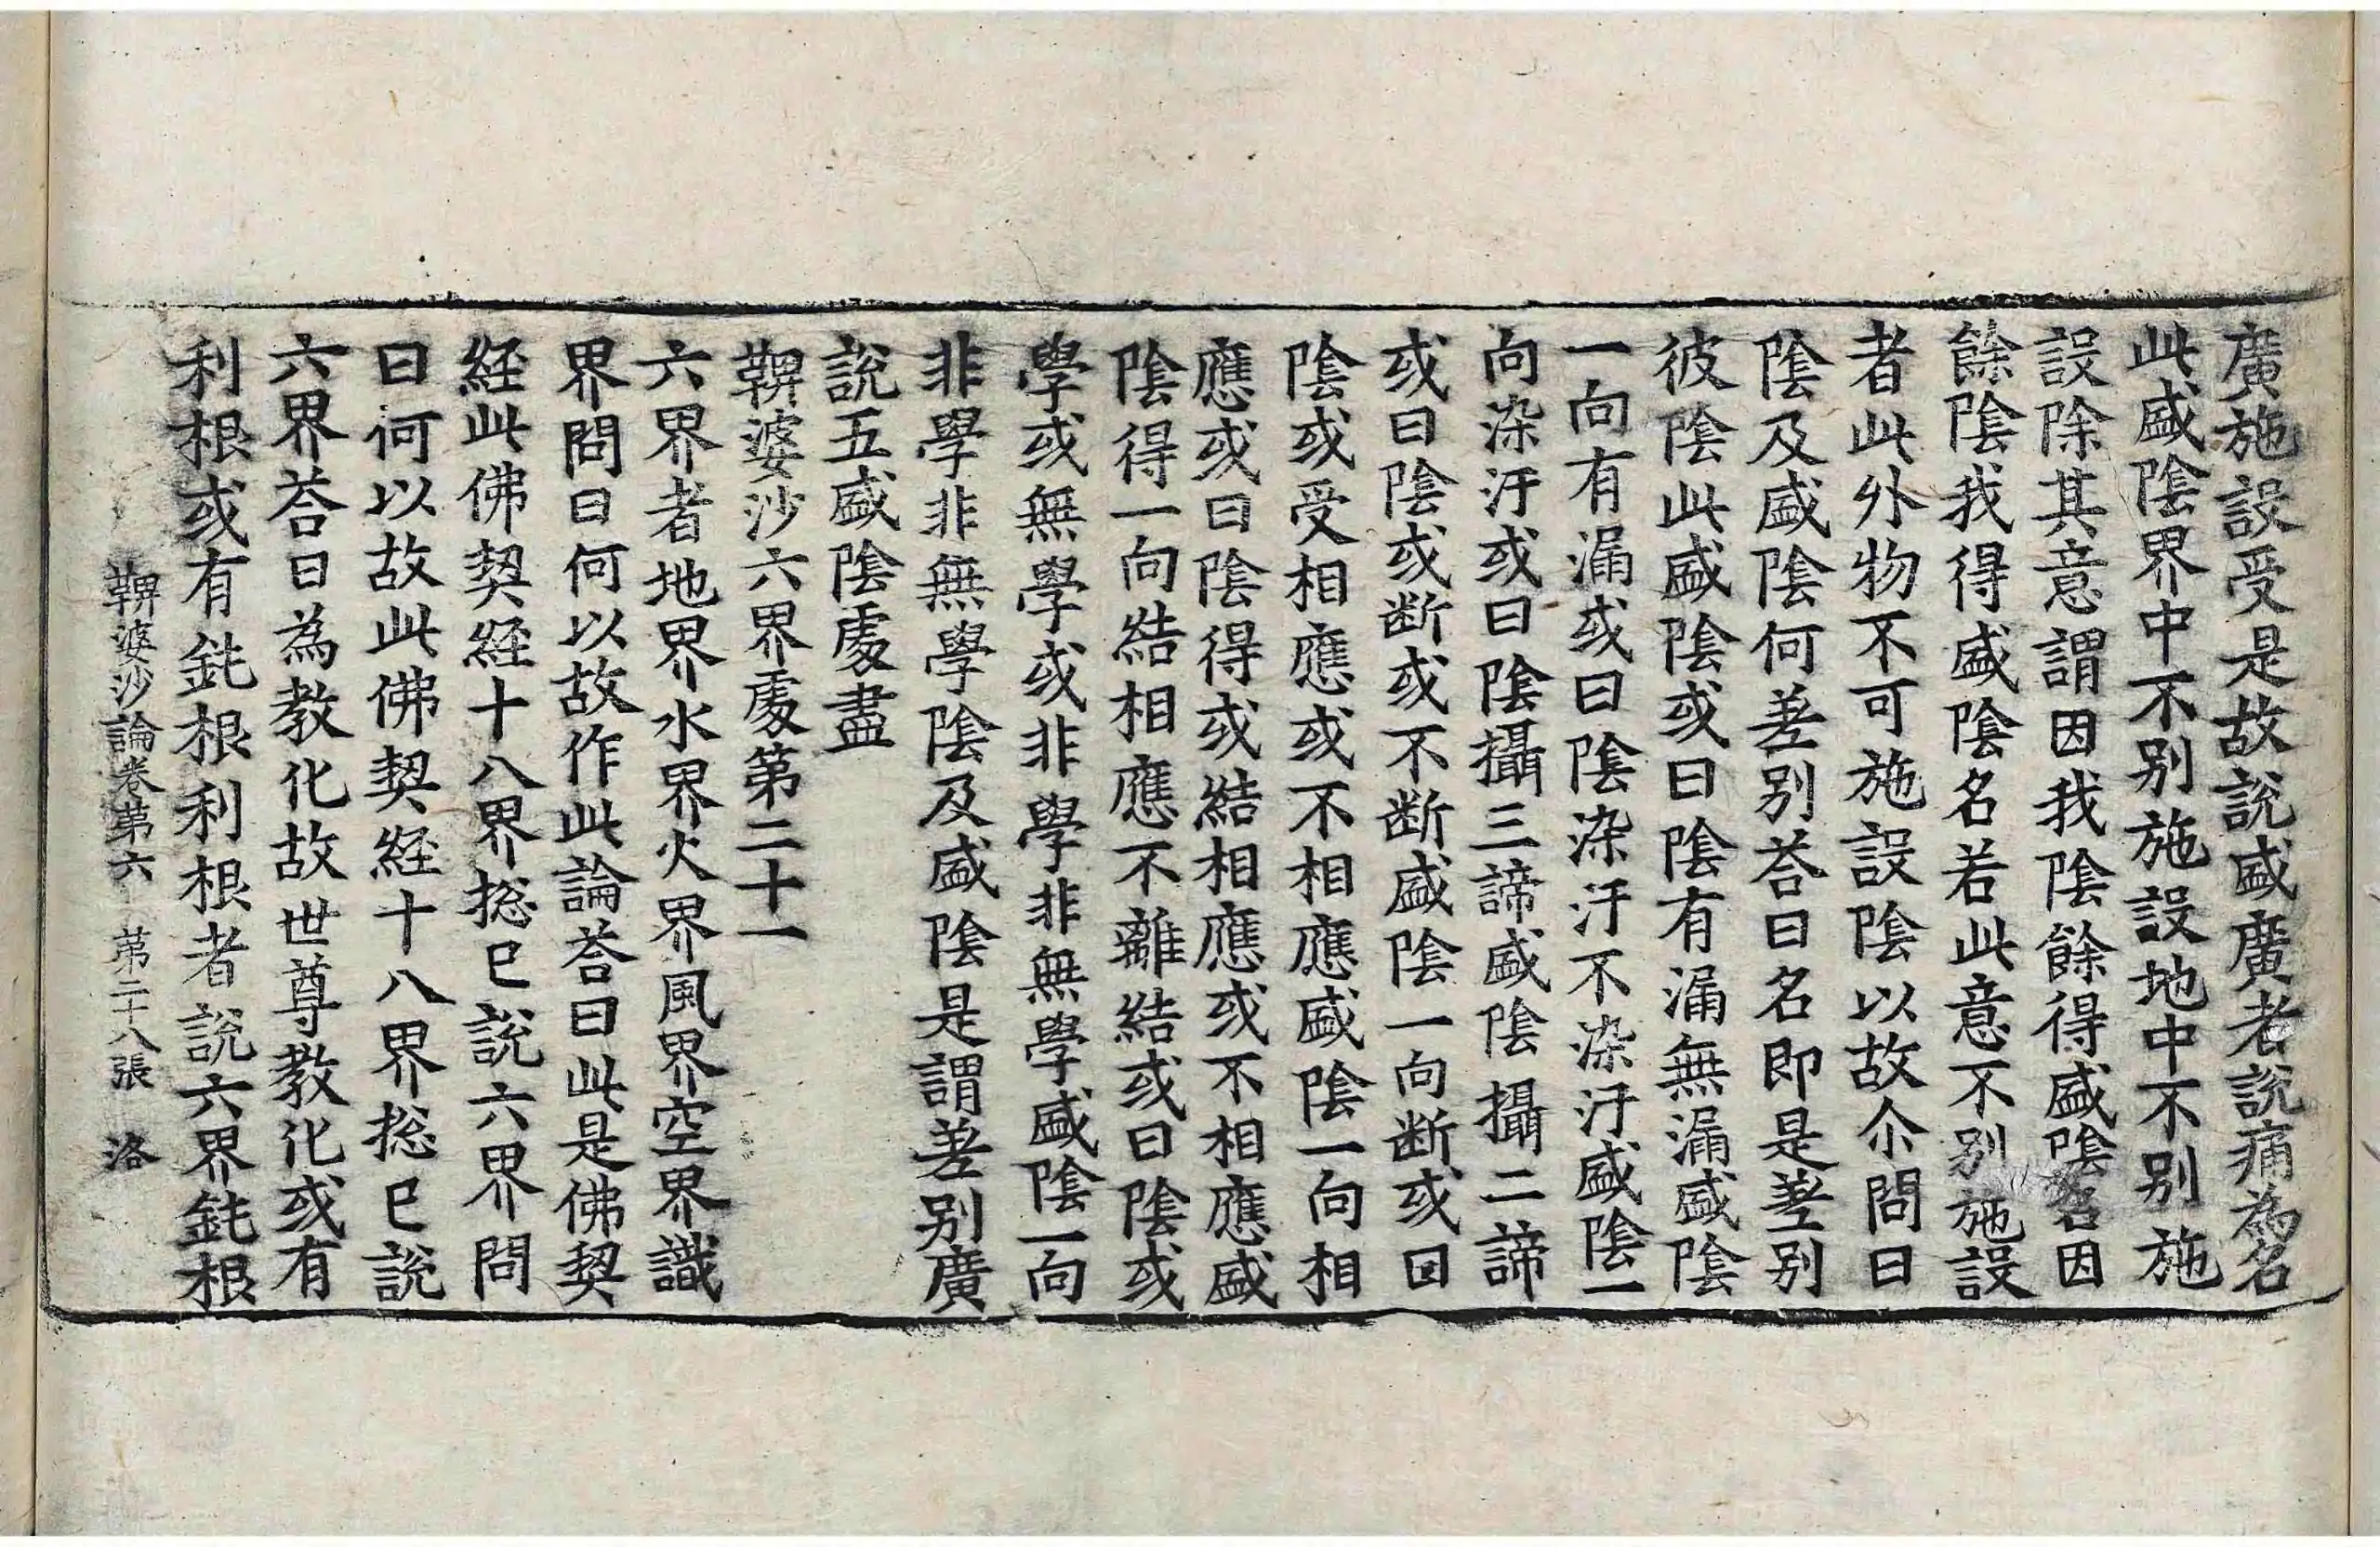 廣施設受是故說盛廣者說痛為名
此盛陰界中不別施設地中不別施
設除其意謂因我陰餘得盛陰名因
餘陰我得盛陰名若此意不別施設
者此外物不可施設陰以故尒問曰
陰及盛陰何差別荅曰名即是差別
彼陰此盛陰或曰陰有漏無漏盛陰
一向有漏或曰陰染汙不染汙盛陰一
向染汙或曰陰攝三諦盛陰攝二諦
或曰陰或断或不断盛陰一向断或曰
陰或受相應或不相應盛陰一向相
應或曰陰得或結相應或不相應盛
陰得一向結相應不離結或曰陰或
學或無學或非學非無學盛陰一向
非學非無學陰及盛陰是謂差別廣
說五盛陰處盡
鞞婆沙六界處第二十一
六界者地界水界火界風界空界識
界問曰何以故作此論荅曰此是佛契
經此佛契經十八界揔已說六界問
曰何以故此佛契經十八界揔已說
六界荅曰為教化故世尊教化或有
利根或有鈍根利根者說六界鈍根
鞞婆沙論卷第六 第二十八張 洛